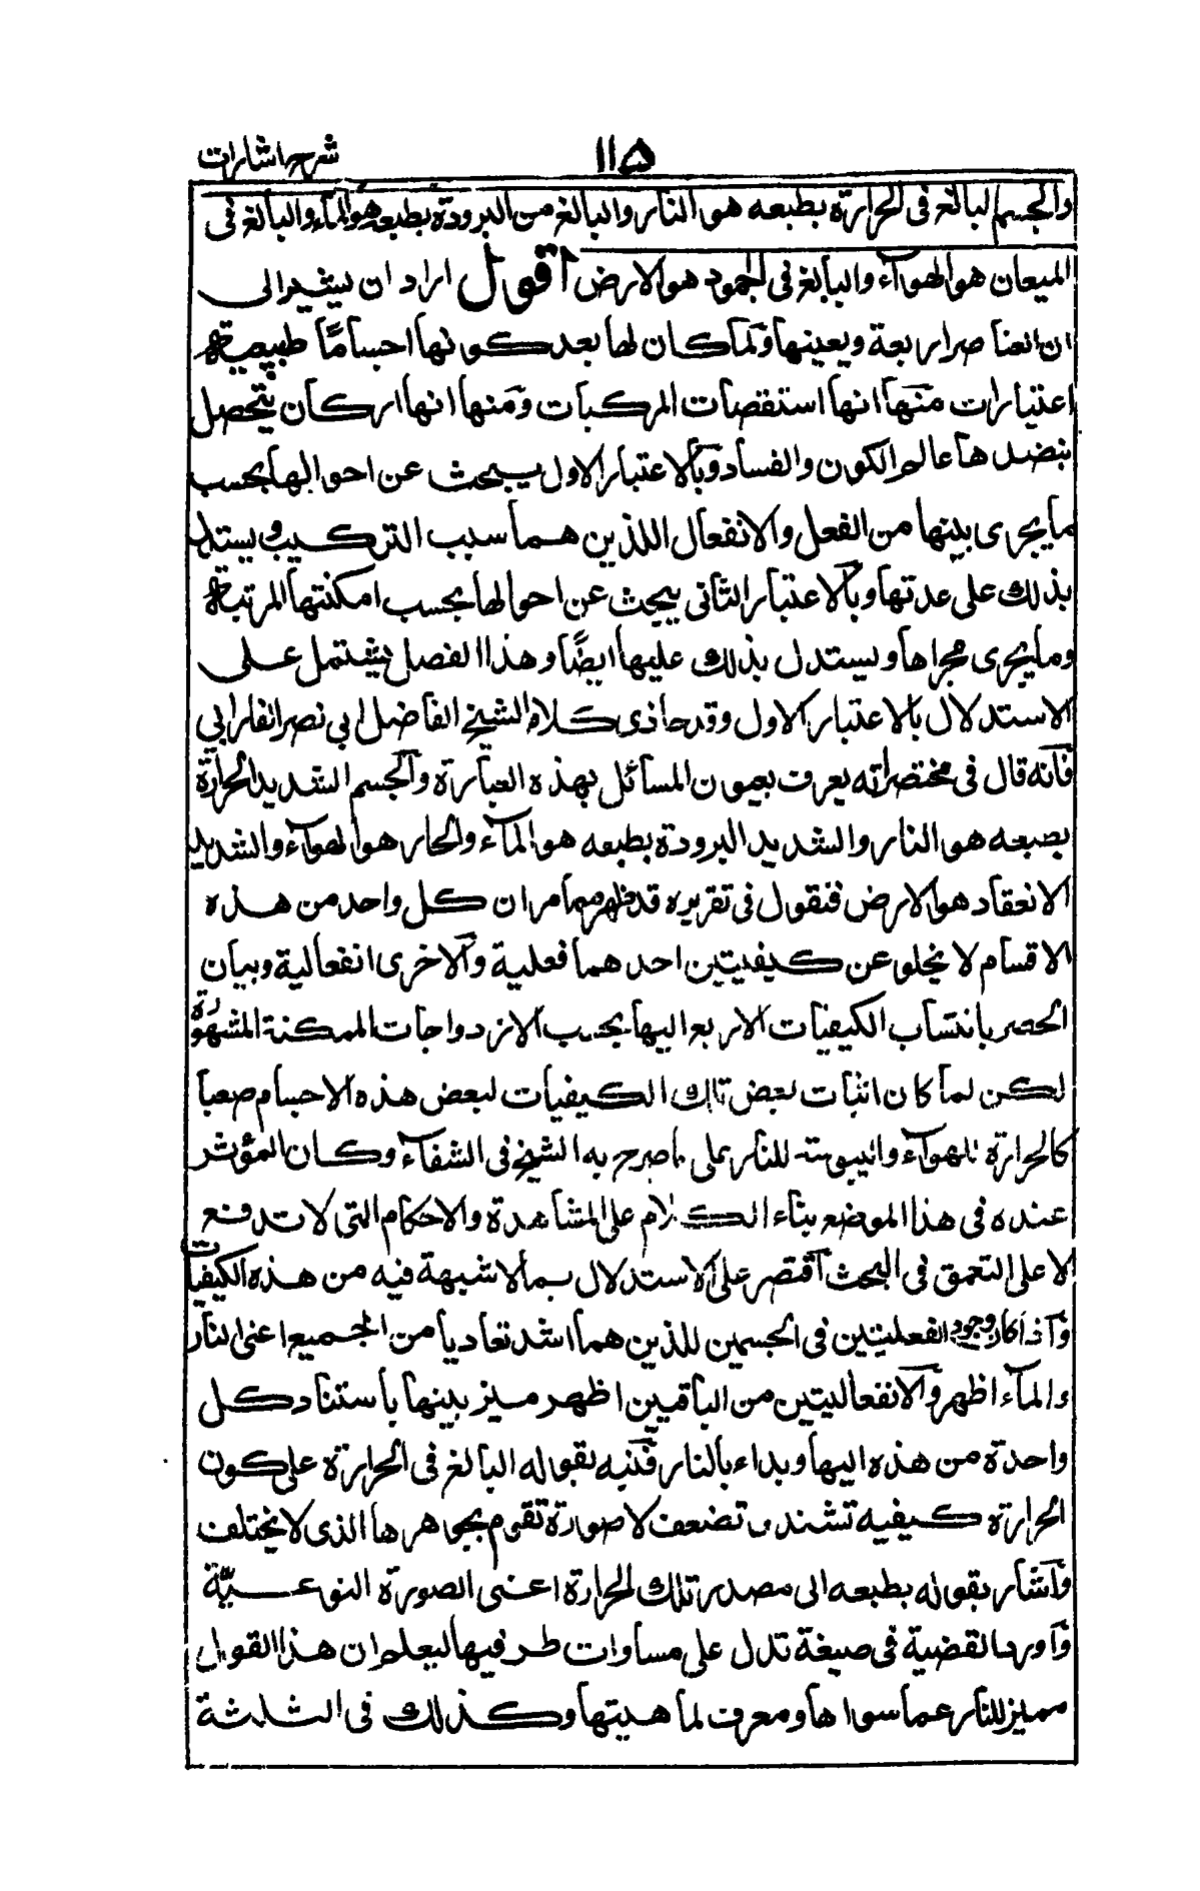 شرح اشارات
١١٥
والجسم البالغ فى الحرارة بطبعه هو النار والبالغ من البرودة بطبعه هو الماء والبالغ فى
الميعان هو الهواء والبالغ فى الجمود هو الارض اقول اراد ان يشير الى
ان العناصر اربعة ويعينها ولما كان لها بعد كونها اجساما طبيعية
اعتبارات منها انها استقصات المركبات ومنها انها اركان يتحصل
بنضدها عالم الكون والفساد وبالاعتبار الاول يبحث عن احوالها بحسب
ما يجرى بينها من الفعل والانفعال اللذين هما سبب التركيب ويستدل
بذلك على عدتها وبالاعتبار الثانى يبحث عن احوالها بحسب امكنتها المرتبة
وما يجرى مجراها ويستدل بذلك عليها ايضًا وهذا الفصل يشتمل على
الاستدلال بالاعتبار الاول وقد حاذى كلام الشيخ الفاضل ابي نصر الفارابي
فانه قال فى مختصراته يعرف بعيون المسائل بهذه العبارة والجسم الشديد الحرارة
بطبعه هو النار والشديد البرودة بطبعه هو الماء والحار هو الهواء والشديد
الانعقاد هو الارض فنقول فى تقريره قد ظهر مما مر ان كل واحد من هذه
الاقسام لا يخلو عن كيفيتين احدهما فعلية والاخرى انفعالية وبيان
الحصر بانتساب الكيفيات الاربع اليها بحسب الازدواجات الممكنة المشهورة
لكن لما كان اثبات بعض تلك الكيفيات لبعض هذه الاجسام صعبا
كالحرارة للهواء واليبوسة للنار على ما صرح به الشيخ فى الشفاء وكان المؤثر
عنده فى هذا الموضع بناء الكلام على المشاهدة والاحكام التى لا تدفع
لا على التعمق فى البحث اقتصر على الاستدلال بما لا شبهة فيه من هذه الكيفيات
واذا كان وجود الفعليتين فى الجسمين للذين هما اشد تعاديا من الجميع اعنى النار
والماء اظهر والانفعاليتين من الباقيين اظهر ميز بينها باستناد كل
واحدة من هذه اليها وبداء بالنار فنبه بقوله البالغ فى الحرارة على كون
الحرارة كيفيه تشتد و تضعف لا صورة تقوم بجوهرها الذى لا يختلف
واشار بقوله بطبعه الى مصدر تلك الحرارة اعنى الصورة النوعيّة
واورد القضية فى صيغة تدل على مساوات طرفيها ليعلم ان هذا القول
مميز للنار عما سواها ومعرف لماهيتها وكذلك فى الثلثة